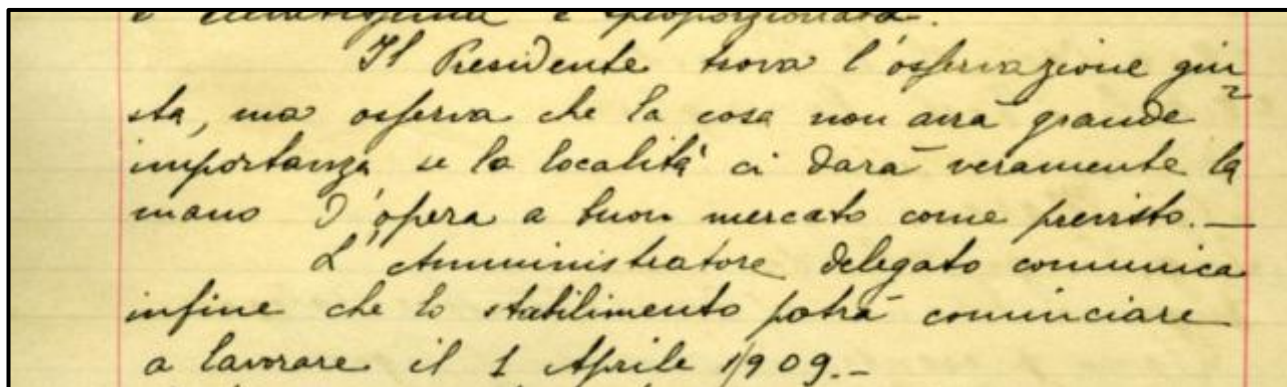 è proporzionata.
Il Presidente trova l'osservazione giu
sta, ma osserva che la cosa non avrà grande
importanza se la località ci darà veramente la
mano d'opera a buon mercato come previsto.—
L'Amministratore delegato comunica
infine che lo stabilimento potrà cominciare
a lavorare il 1 Aprile 1909.—